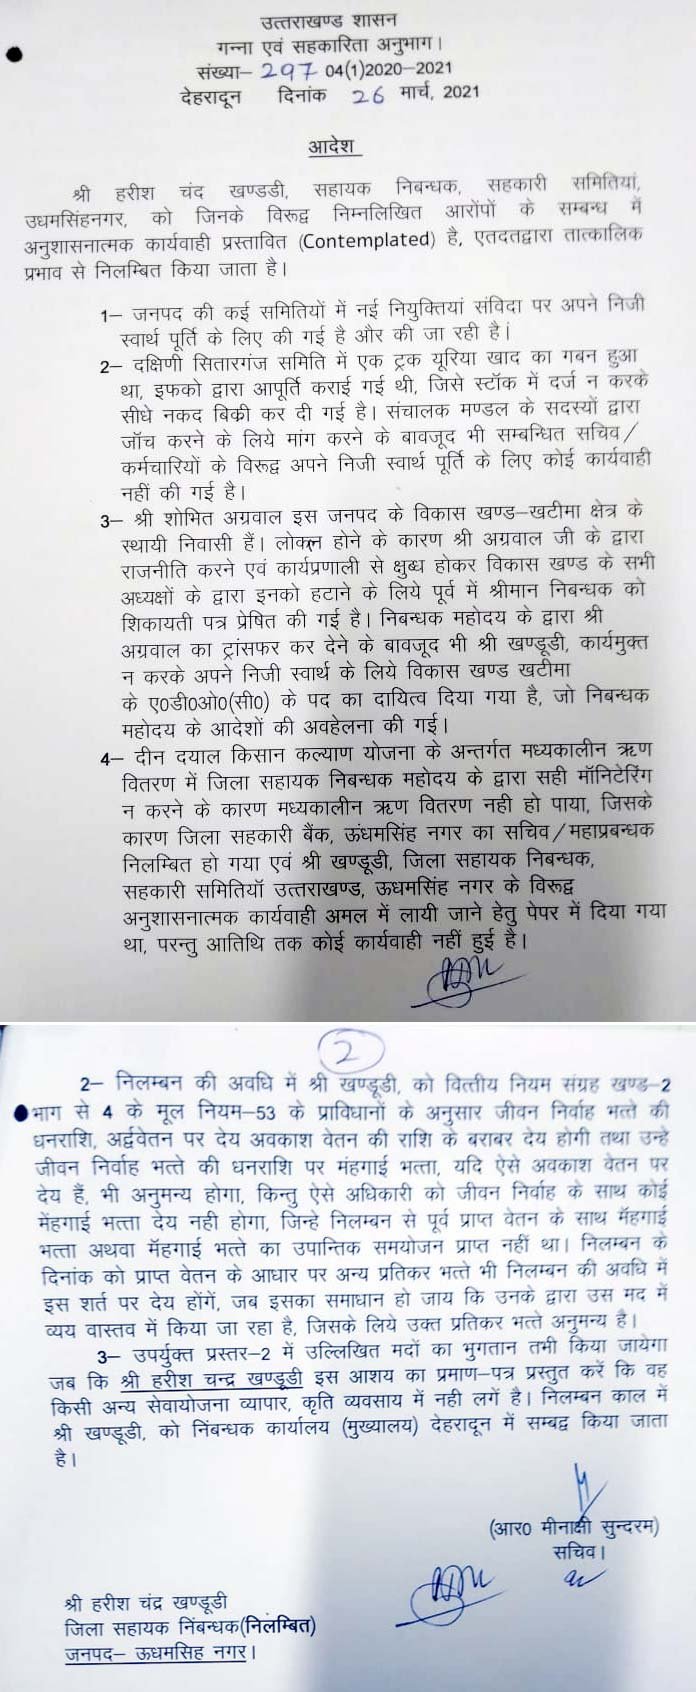 उत्तराखण्ड शासन
गन्ना एवं सहकारिता अनुभाग।
संख्या– 297 04(1)2020–2021
देहरादून दिनांक 26 मार्च, 2021
आदेश
श्री हरीश चंद खण्डडी, सहायक निबन्धक, सहकारी समितियां,
उधमसिंहनगर, को जिनके विरूद्व निम्नलिखित आरोपों के सम्बन्ध में
अनुशासनात्मक कार्यवाही प्रस्तावित (Contemplated) है, एतदतद्वारा तात्कालिक
प्रभाव से निलम्बित किया जाता है।
1– जनपद की कई समितियों में नई नियुक्तियां संविदा पर अपने निजी
स्वार्थ पूर्ति के लिए की गई है और की जा रही है।
2– दक्षिणी सितारगंज समिति में एक ट्रक यूरिया खाद का गबन हुआ
था, इफको द्वारा आपूर्ति कराई गई थी, जिसे स्टॉक में दर्ज न करके
सीधे नकद बिक्री कर दी गई है। संचालक मण्डल के सदस्यों द्वारा
जॉच करने के लिये मांग करने के बावजूद भी सम्बन्धित सचिव/
कर्मचारियों के विरूद्व अपने निजी स्वार्थ पूर्ति के लिए कोई कार्यवाही
नहीं की गई है।
3– श्री शोभित अग्रवाल इस जनपद के विकास खण्ड–खटीमा क्षेत्र के
स्थायी निवासी हैं। लोकल होने के कारण श्री अग्रवाल जी के द्वारा
राजनीति करने एवं कार्यप्रणाली से क्षुब्ध होकर विकास खण्ड के सभी
अध्यक्षों के द्वारा इनको हटाने के लिये पूर्व में श्रीमान निबन्धक को
शिकायती पत्र प्रेषित की गई है। निबन्धक महोदय के द्वारा श्री
अग्रवाल का ट्रांसफर कर देने के बावजूद भी श्री खण्डूडी, कार्यमुक्त
न करके अपने निजी स्वार्थ के लिये विकास खण्ड खटीमा
के ए0डी0ओ0(सी0) के पद का दायित्व दिया गया है, जो निबन्धक
महोदय के आदेशों की अवहेलना की गई।
4– दीन दयाल किसान कल्याण योजना के अन्तर्गत मध्यकालीन ऋण
वितरण में जिला सहायक निबन्धक महोदय के द्वारा सही मॉनिटेरिंग
न करने के कारण मध्यकालीन ऋण वितरण नही हो पाया, जिसके
कारण जिला सहकारी बैंक, ऊंधमसिंह नगर का सचिव/महाप्रबन्धक
निलम्बित हो गया एवं श्री खण्डूडी, जिला सहायक निबन्धक,
सहकारी समितियॉ उत्तराखण्ड, ऊधमसिंह नगर के विरूद्व
अनुशासनात्मक कार्यवाही अमल में लायी जाने हेतु पेपर में दिया गया
था, परन्तु आतिथि तक कोई कार्यवाही नहीं हुई है।
2
2– निलम्बन की अवधि में श्री खण्डूडी, को वित्तीय नियम संग्रह खण्ड–2
भाग से 4 के मूल नियम–53 के प्राविधानों के अनुसार जीवन निर्वाह भत्ते की
धनराशि, अर्द्ववेतन पर देय अवकाश वेतन की राशि के बराबर देय होगी तथा उन्हे
जीवन निर्वाह भत्ते की धनराशि पर मंहगाई भत्ता, यदि ऐसे अवकाश वेतन पर
देय हैं, भी अनुमन्य होगा, किन्तु ऐसे अधिकारी को जीवन निर्वाह के साथ कोई
मेंहगाई भत्ता देय नही होगा, जिन्हे निलम्बन से पूर्व प्राप्त वेतन के साथ मॅहगाई
भत्ता अथवा मॅहगाई भत्ते का उपान्तिक समयोजन प्राप्त नहीं था। निलम्बन के
दिनांक को प्राप्त वेतन के आधार पर अन्य प्रतिकर भत्ते भी निलम्बन की अवधि में
इस शर्त पर देय होंगें, जब इसका समाधान हो जाय कि उनके द्वारा उस मद में
व्यय वास्तव में किया जा रहा है, जिसके लिये उक्त प्रतिकर भत्ते अनुमन्य है।
3– उपर्युक्त प्रस्तर–2 में उल्लिखित मदों का भुगतान तभी किया जायेगा
जब कि श्री हरीश चन्द्र खण्डूडी इस आशय का प्रमाण–पत्र प्रस्तुत करें कि वह
किसी अन्य सेवायोजना व्यापार, कृति व्यवसाय में नही लगें है। निलम्बन काल में
श्री खण्डूडी, को निंबन्धक कार्यालय (मुख्यालय) देहरादून में सम्बद्व किया जाता
है।
(आर0 मीनाक्षी सुन्दरम)
सचिव।
श्री हरीश चंद्र खण्डूडी
जिला सहायक निंबन्धक(निलम्बित)
जनपद– ऊधमसिह नगर।